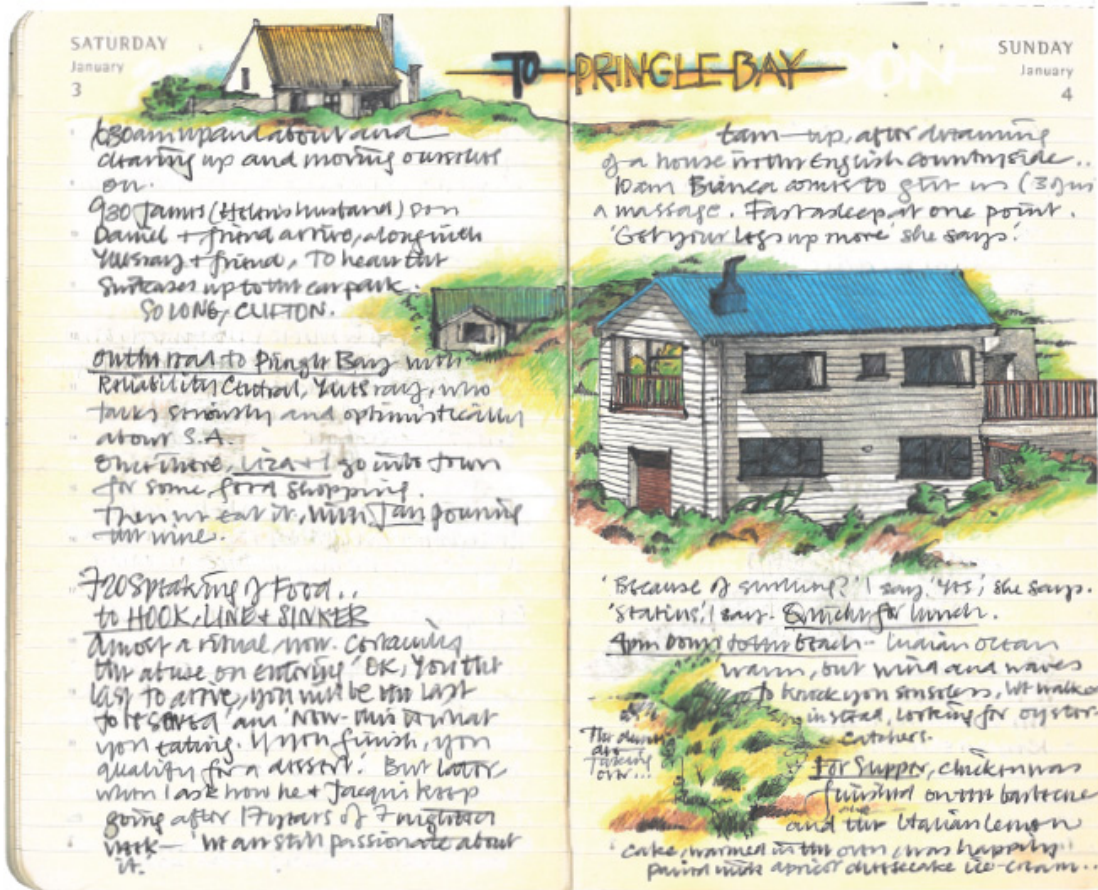 SATURDAY
January
3
TO PRINGLE BAY
SUNDAY
January
4
630am up and about and
clearing up and moving ourselves
on.
930 James (Helen's husband) son
Daniel + friend arrive, along with
+ friend, To heave the
Suitcases up to the car park.
SO LONG, CLIFTON.
On the road to Pringle Bay with
Reliability Central, who
talks seriously and optimistically
about S.A.
Once there, Liza + I go into town
for some food shopping.
Then we eat it, with Jan pouring
the wine.
720 Speaking of Food..
to HOOK, LINE + SINKER
Almost a ritual now. Certainly
the abuse on entering 'OK, you the
last to arrive, you will be the last
to be served' and 'Now - this is what
you eating. If you finish, you
qualify for a dessert.' But later,
when I ask how he + Jacqui keep
going after 17 years of 7 nights a
week — 'We are still passionate about
it.'
6am — up, after dreaming
of a house in the English countryside..
10am Bianca comes to give us (30
a massage. Fast asleep at one point.
'Get your legs up more' she says.
'Because of ?' I say. 'Yes', she says.
'Statins', I say. for lunch.
4pm Down to the beach - Indian ocean
warm, but wind and waves
to knock you senseless, we walked
instead, looking for oyster-
catchers.
The dunes
are
taking
over...
For Supper, chicken was
finished on the barbecue
and the Italian lemon
cake, warmed in the oven, was happily
paired with apricot cheesecake ice-cream..